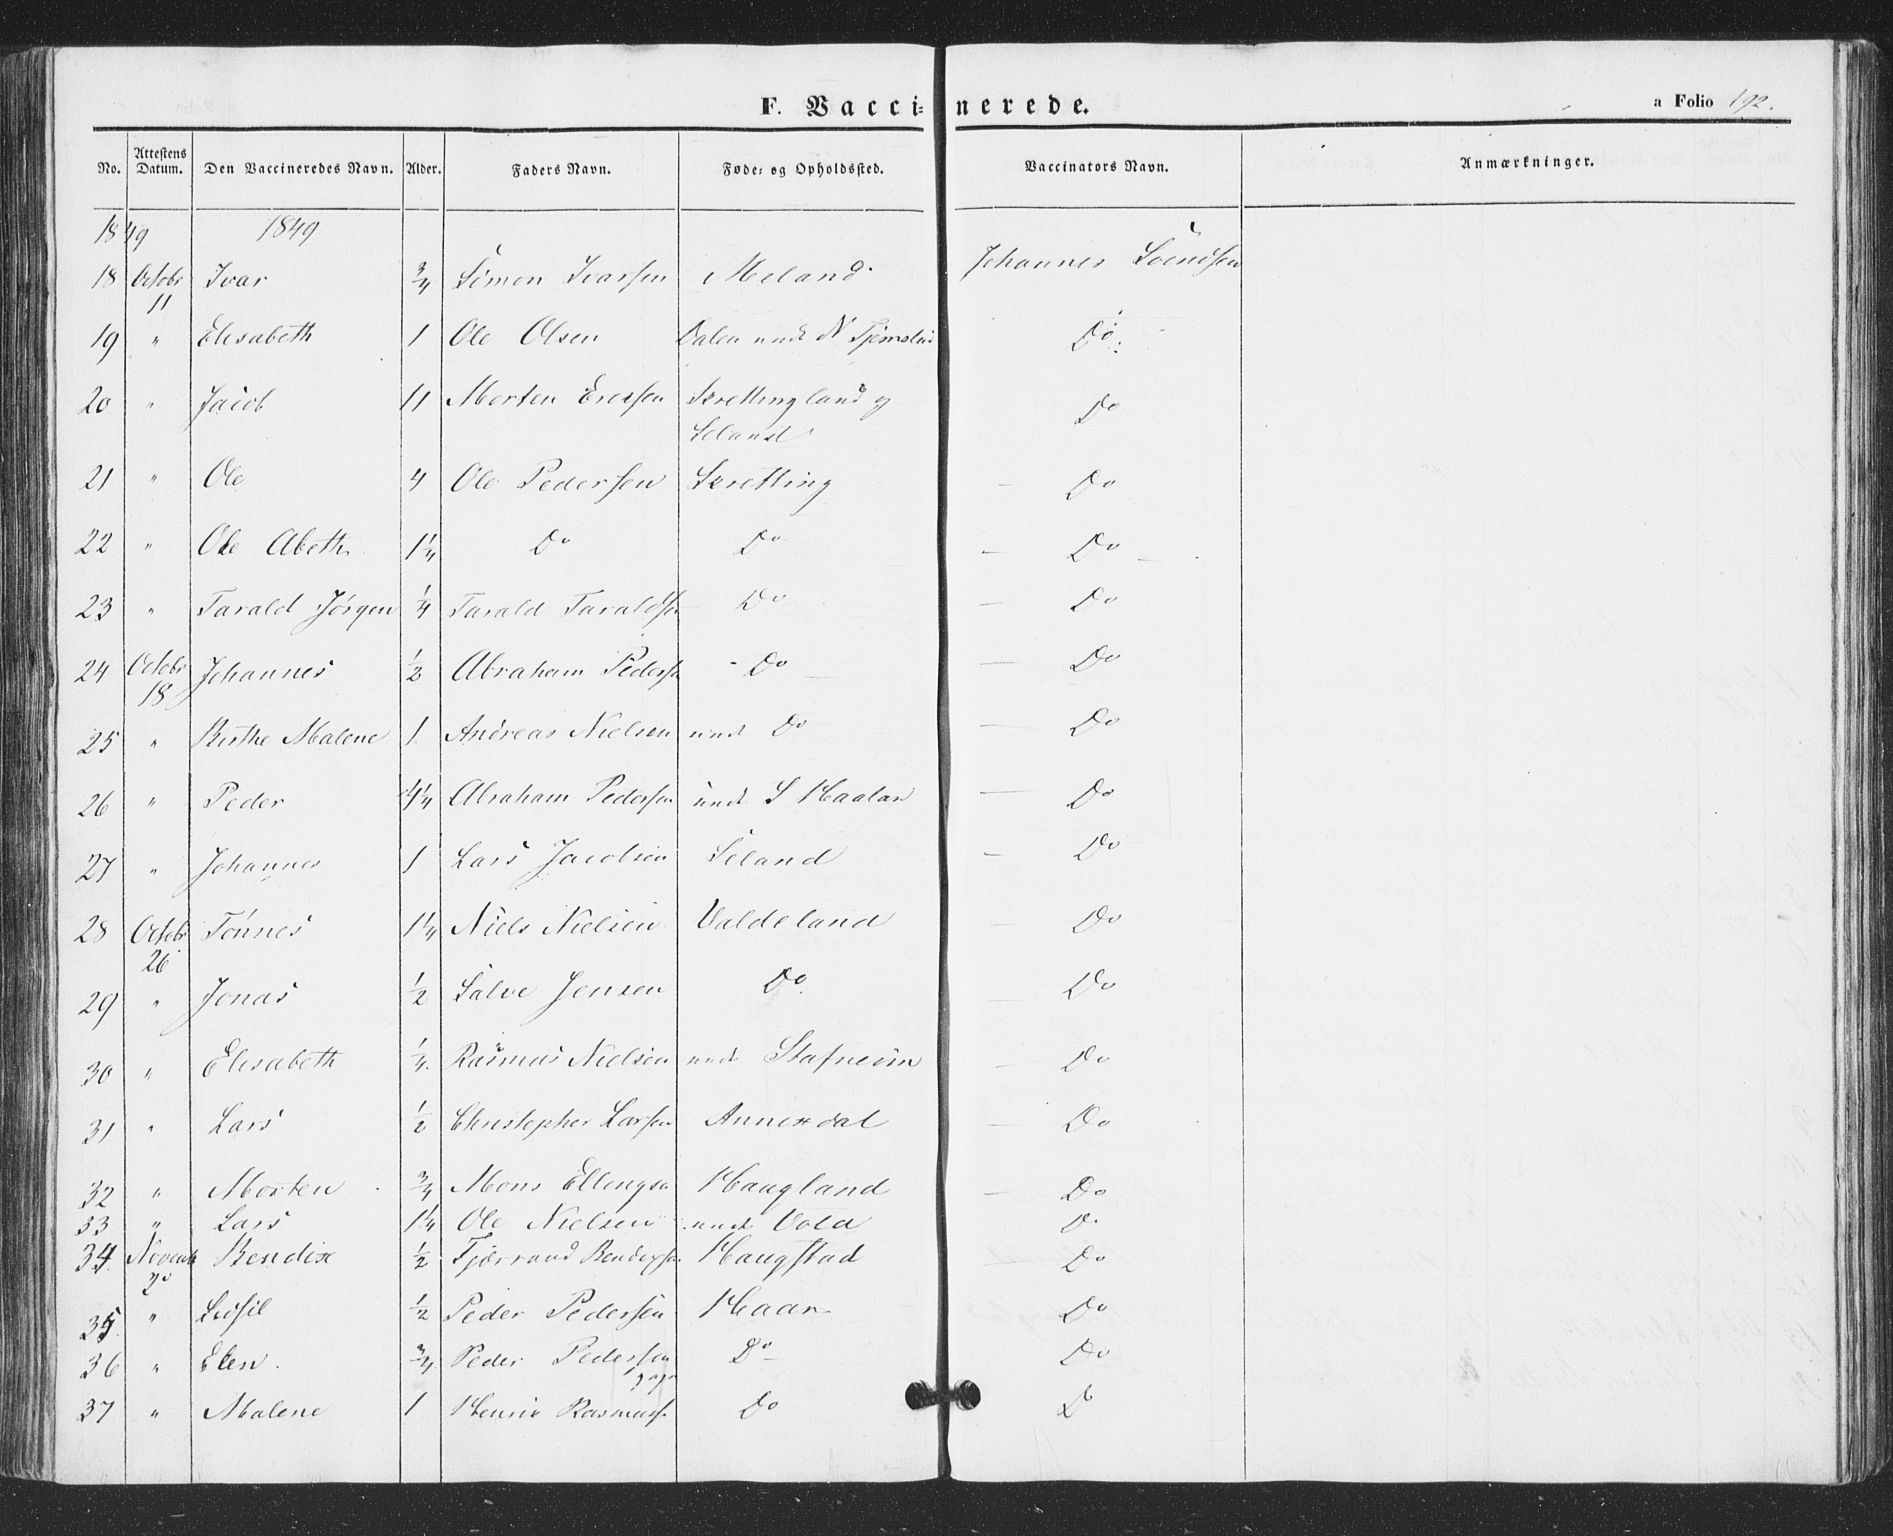 F. Vaccinerede. a Folio 192.
No. Attestens Datum. Den Vaccineredes Navn. Alder. Faders Navn. Føde- og Opholdssted. Vaccinators Navn. Anmærkninger.
1849 1849
18 Octobr 11 Ivar 3/4 Simon Ivarsen Meland Johannes Svendsen
19 " Elisabeth 1 Ole Olsen Dalen und N Tjemsland Do
20 " Jacob 11 Morten Ericsen Skrettingland og
Seland Do
21 " Ole 4 Ole Pedersen Skretting Do
22 " Ole Abeth 1 1/4 Do Do Do
23 " Tarald Jörgen 1/4 Tarald Taraldsen Do Do
24 Octobr 18 Johannes 1/2 Abraham Peders Do Do
25 " Birthe Malene 1 Andreas Nielsen und Do Do
26 " Peder 4 1/4 Abraham Pedersen und S Haaland Do
27 " Johannes 1 Lars Jacobsen Seland Do
28 Octobr 26 Tönnes 1 1/4 Niels Nielsen Valdeland Do
29 " Jonas 1/2 Salve Jensen Do Do
30 " Elisabeth 1/4 Rasmus Nielsen und Stafneim Do
31 " Lars 1/2 Christopher Larsen Annexdal Do
32 " Morten 3/4 Mons Ellingsen Haugland Do
33 " Lars 1 1/4 Ole Nielsen und Vold Do
34 Novemb 2 Bendix 1/2 Tjörrand Bendixsen Haugstad Do
35 " Sidsil 1/2 Peder Pedersen Haar Do
36 " Elen 3/4 Peder Pedersen Do Do
37 " Malene 1 Henric Rasmus Do Do